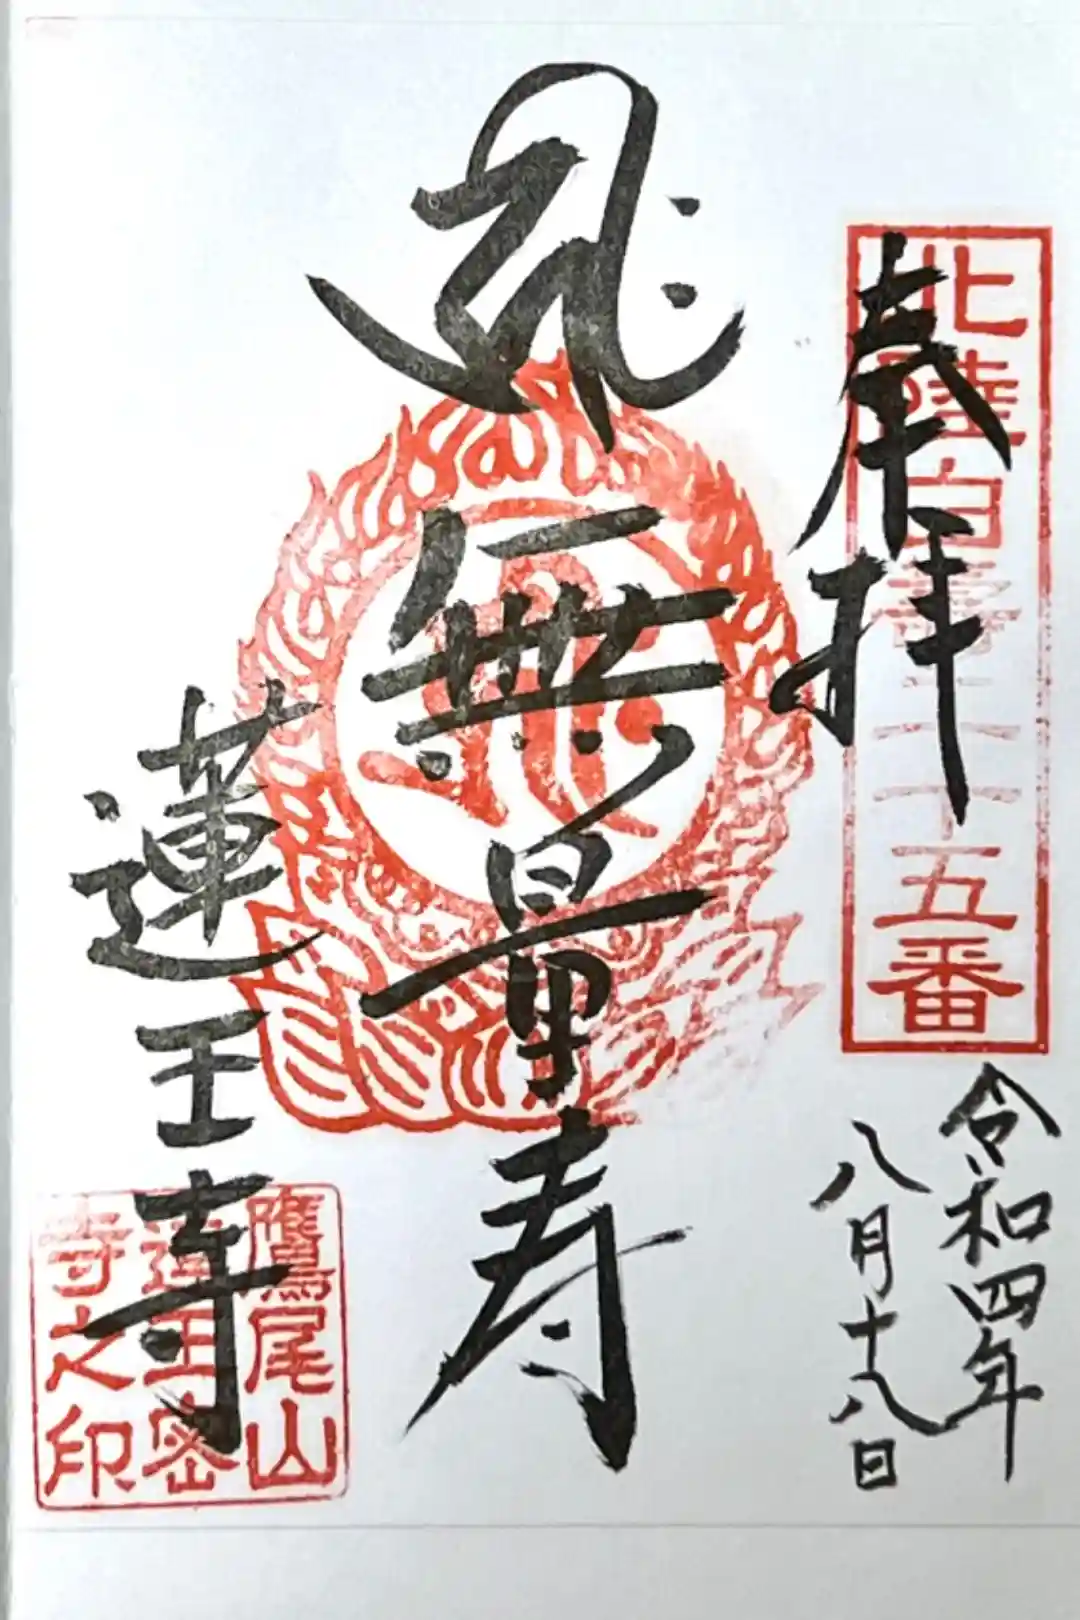 奉拝
北陸白寿三十五番
令和四年
八月十八日
𑖮𑖿𑖨𑖱𑖾
無量寿
蓮王寺
鷹尾山
蓮王密
寺之印